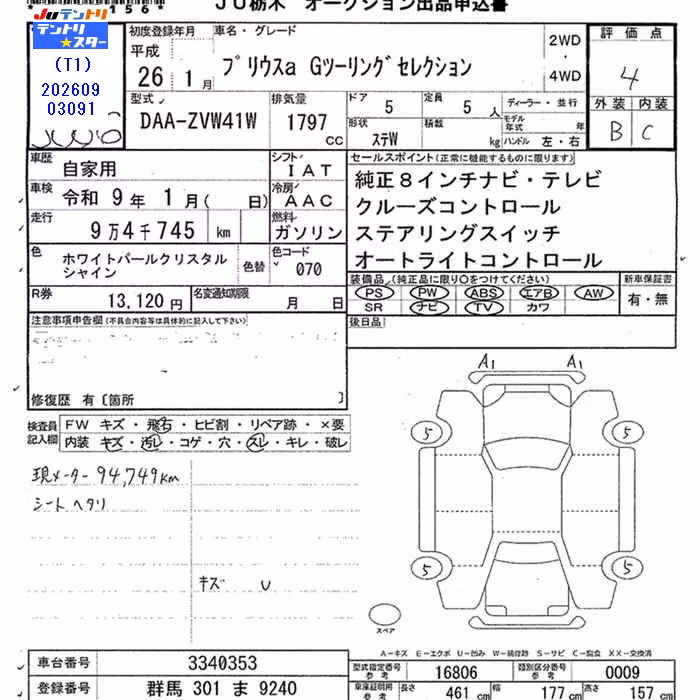 *156*
JU栃木 オークション出品申込書
JUテントリ
テントリ★スター
(T1)
202609
03091
初度登録年月
平成
26 1月
車名・グレード
プリウスa Gツーリングセレクション
2WD
4WD
評価点
4
外装 内装
B C
型式
DAA-ZVW41W
排気量
1797 CC
ドア 5
定員 5 人
形状 ステW
積載 kg
ディーラー・並行
モデル年式 年
ハンドル 左・右
車歴 自家用
車検 令和 9年 1月( 日)
走行 9万4千745 km
シフト IAT
冷房 AAC
燃料 ガソリン
色 ホワイトパールクリスタルシャイン
色替
色コード 070
R券 13,120円
名変通知期限 月 日
セールスポイント(正常に機能するものに限ります)
純正8インチナビ・テレビ
クルーズコントロール
ステアリングスイッチ
オートライトコントロール
装備品(純正品に限り○をつけてください)
PS PW ABS エアB AW
SR ナビ TV カワ
新車保証書
有・無
後日品
注意事項申告欄(不具合内容等は具体的に記入して下さい)
修復歴 有〔箇所 〕
検査員記入欄
FW キズ・飛石・ヒビ割・リペア跡・×要
内装 キズ・汚レ・コゲ・穴・スレ・キレ・破レ
現メーター 94,749km
シート ヘタリ
キズ U
A1 A1
5 5
5 5
スペア
A-キズ E-エクボ U-凹み W-補修跡 S-サビ C-腐食 XX-交換済
車台番号 3340353
登録番号 群馬 301 ま 9240
型式指定番号 参考 16806
類別区分番号 参考 0009
車庫証明用 参考 長さ 461 cm 幅 177 cm 高さ 157 cm